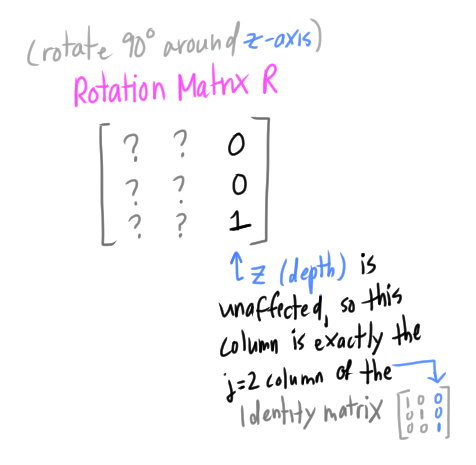 (rotate 90° around z-axis)
Rotation Matrix R
? ? 0
? ? 0
? ? 1
↑ z (depth) is
unaffected, so this
column is exactly the
j=2 column of the
Identity matrix
1 0 0
0 1 0
0 0 1